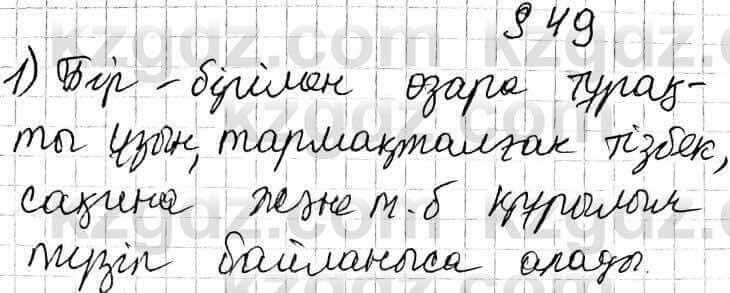 § 49
1) Бір-бірімен өзара тұрақ-
ты ұзын, тармақталған тізбек,
сақина және т.б құрылым
түзіп байланыса алады.